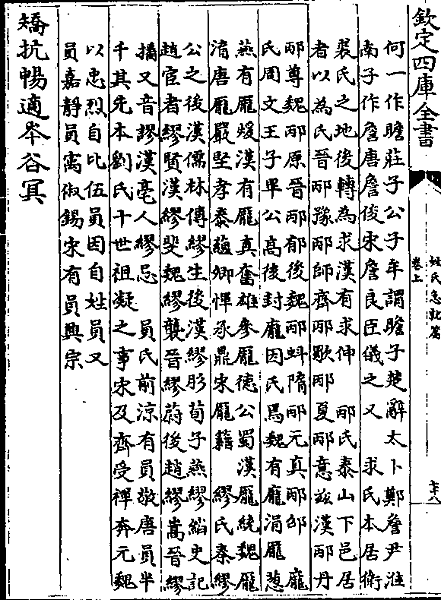 欽定四庫全書
姓氏急就篇
卷上
何一作瞻莊子公子牟謂瞻子楚辭太卜鄭詹尹淮
南子作詹唐詹俊宋詹良臣儀之又　求氏本居衛
裘氏之地後轉為求漢有求仲　邴氏泰山下邑居
者以為氏晉邴豫邴師齊邴歜邴夏邴意茲漢邴丹
邴尊魏邴原晉邴郁後魏邴蚪隋邴元真邴部　龐
氏周文王子畢公高後封龐因氏焉魏有龐涓龐葱
燕有龐煖漢有龐真奮雄參龐德公蜀漢龐統魏龐
淯唐龐嚴堅孝泰蘊卿惲承鼎宋龐籍　繆氏秦繆
公之後漢儒林傳繆生後漢繆肜荀子燕繆絹史記
趙宦者繆賢漢繆斐魏繆襲晉繆蔚後趙繆嵩晉繆
播又音謬漢亳人繆忌　員氏前涼有員敞唐員半
千其先本劉氏十世祖凝之事宋及齊受禪奔元魏
以忠烈自比伍員因自姓員又
員嘉靜員寓俶錫宋有員興宗
矯抗暢適岑谷冥